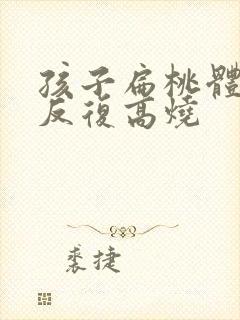 孩子扁桃體
反復高燒
裘捷